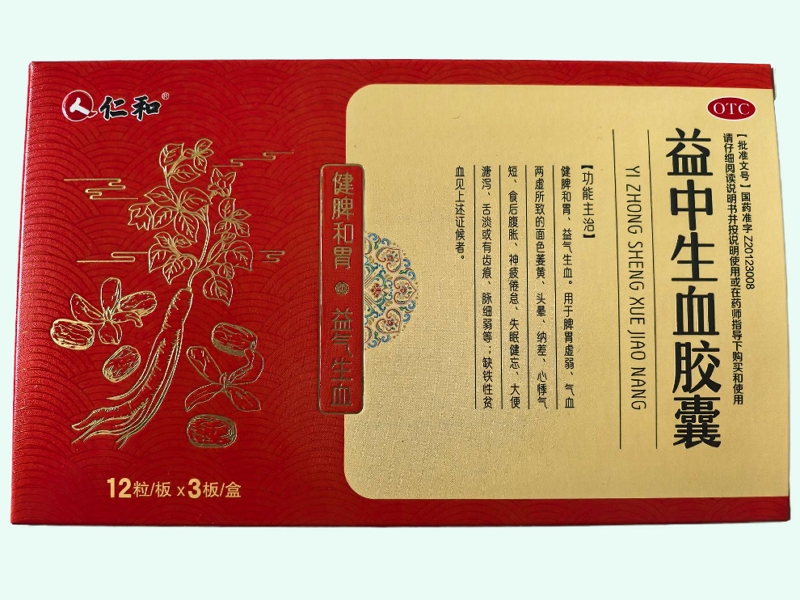 仁和®
健脾和胃 益气生血
12粒/板 x 3板/盒
OTC
【批准文号】国药准字Z20123008
请仔细阅读说明书并按说明使用或在药师指导下购买和使用
益中生血胶囊
YI ZHONG SHENG XUE JIAO NANG
【功能主治】
健脾和胃、益气生血。用于脾胃虚弱、气血
两虚所致的面色萎黄、头晕、纳差、心悸气
短、食后腹胀、神疲倦怠、失眠健忘、大便
溏泻、舌淡或有齿痕、脉细弱等；缺铁性贫
血见上述证候者。